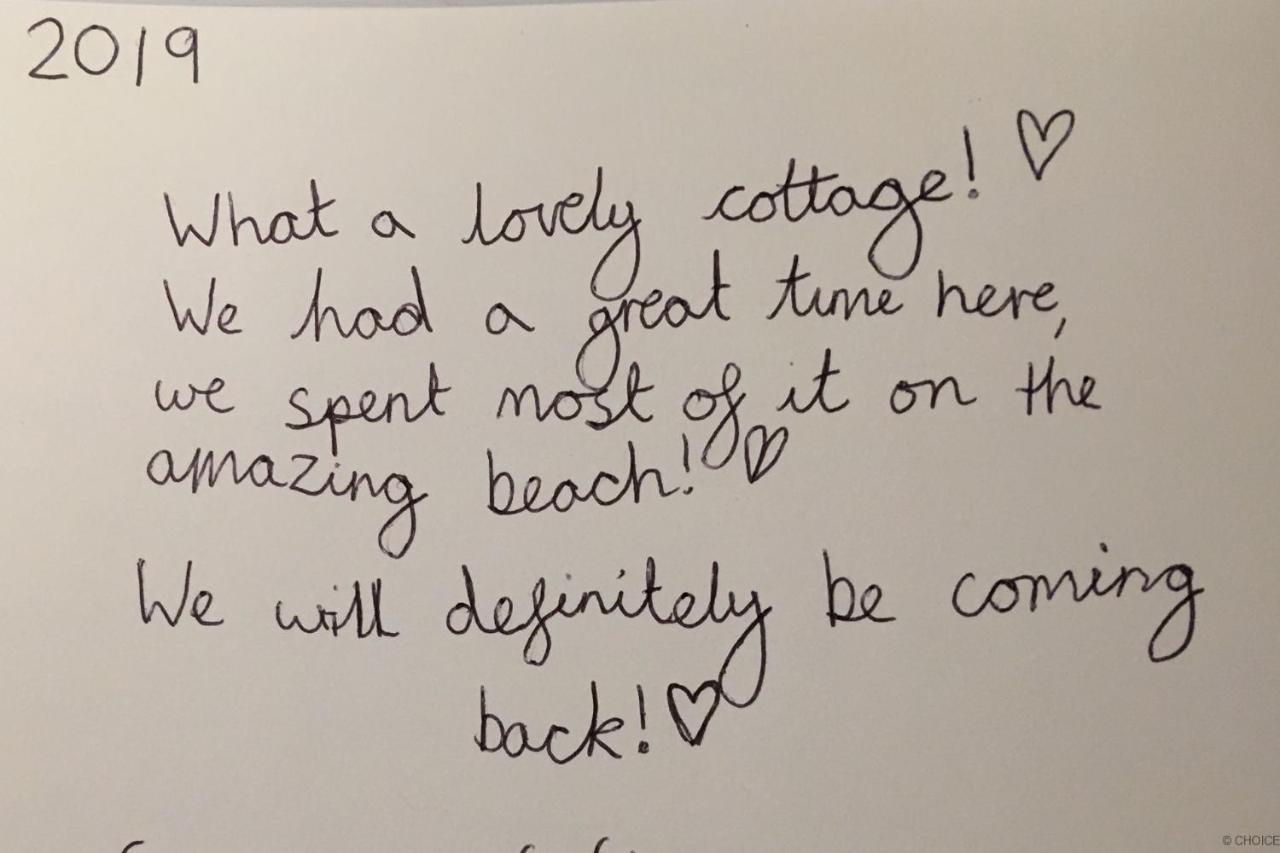 2019
What a lovely cottage! ♡
We had a great time here,
we spent most of it on the
amazing beach! ♡
We will definitely be coming
back! ♡
© CHOICE